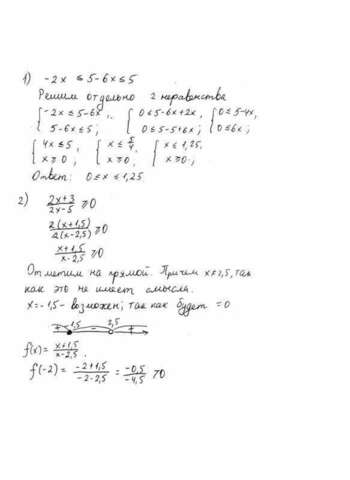 1) -2x ≤ 5-6x ≤ 5
Решим отдельно 2 неравенства
{ -2x ≤ 5-6x, { 0 ≤ 5-6x+2x, { 0 ≤ 5-4x,
{ 5-6x ≤ 5; { 0 ≤ 5-5+6x; { 0 ≤ 6x;
{ 4x ≤ 5, { x ≤ 5/4, { x ≤ 1,25,
{ x ≥ 0; { x ≥ 0; { x ≥ 0;
Ответ: 0 ≤ x ≤ 1,25
2) (2x+3)/(2x-5) ≥ 0
2(x+1,5)/2(x-2,5) ≥ 0
(x+1,5)/(x-2,5) ≥ 0
Отметим на прямой. Причем x ≠ 2,5, так
как это не имеет смысла.
x = -1,5 - возможен, так как будет = 0
+ -1,5 - 2,5 +
f(x) = (x+1,5)/(x-2,5).
f(-2) = (-2+1,5)/(-2-2,5) = (-0,5)/(-4,5) > 0